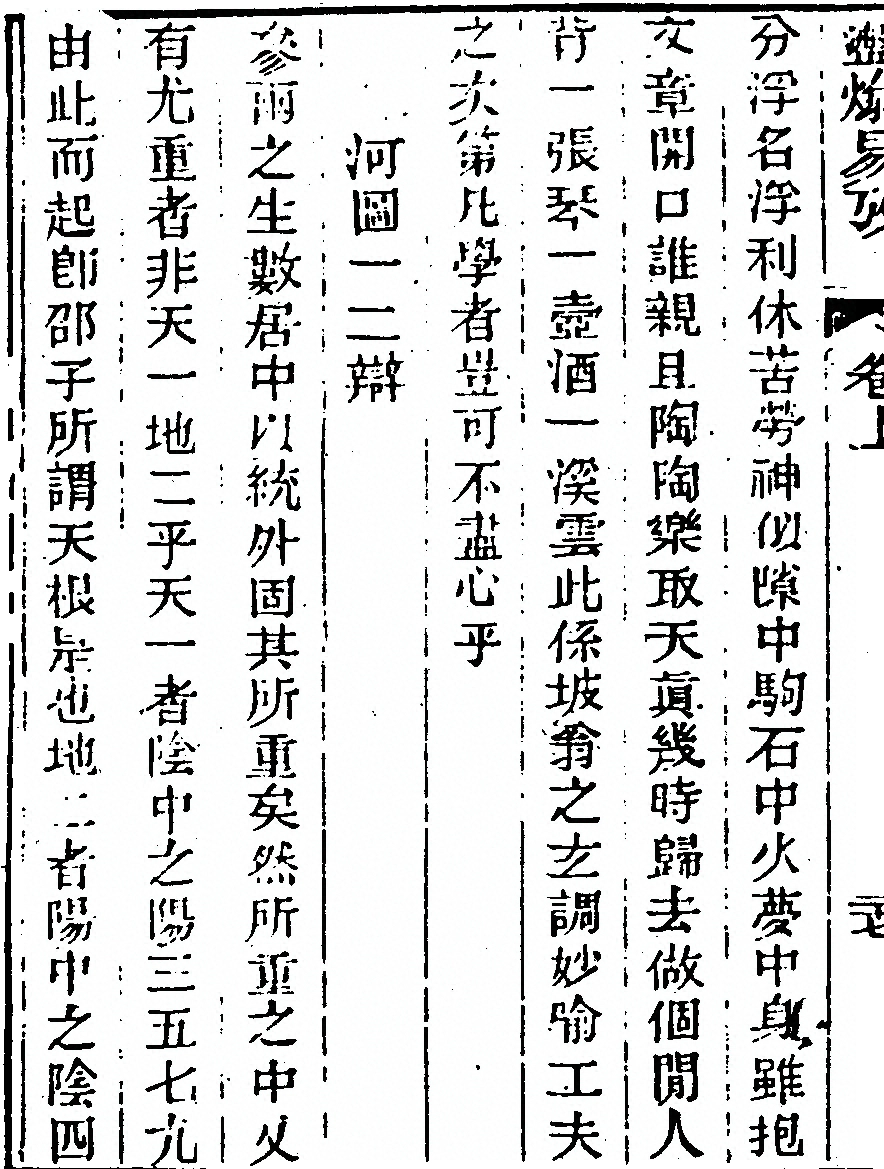 易 卷上
分浮名浮利休苦勞神似隙中駒石中火夢中身雖抱
文章開口誰親且陶陶樂取天眞幾時歸去做個閒人
背一張琴一壺酒一溪雲此係坡翁之玄調妙喻工夫
之次第凡學者豈可不盡心乎
河圖一二辯
參兩之生數居中以統外固其所重矣然所重之中又
有尤重者非天一地二乎天一者陰中之陽三五七九
由此而起卽邵子所謂天根是也地二者陽中之陰四